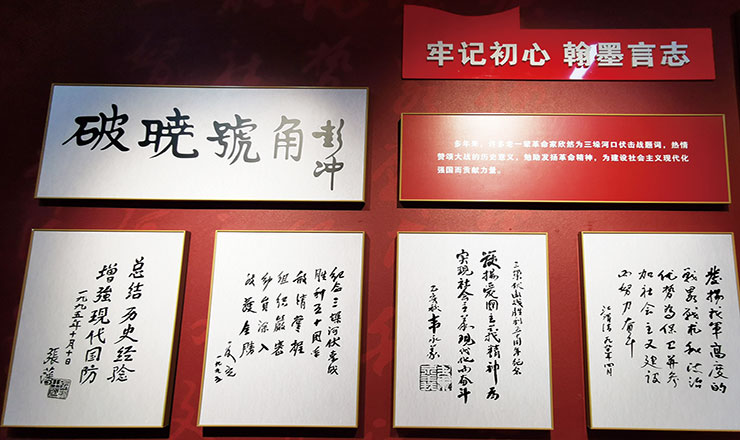 牢记初心 翰墨言志
破晓號角
彭冲
多年来，许多老一辈革命家欣然为三垛河口伏击战题词，热情
赞颂大战的历史意义，勉励发扬革命精神，为建设社会主义现代化
强国而贡献力量。
总结历史经验
增強现代国防
一九九五年十月十日
張藩
纪念三垛河伏击战
胜利五十周年
敌情掌握
组织严密
深入
全胜
一九九五
三垛伏击战胜利五十周年纪念
发扬爱国主义精神为
实现社会主义现代化而奋斗
乙亥秋
发揚我军高度的
战略战术和政治
优势为保卫并参
加社会主义建设
而努力奋斗
江渭清